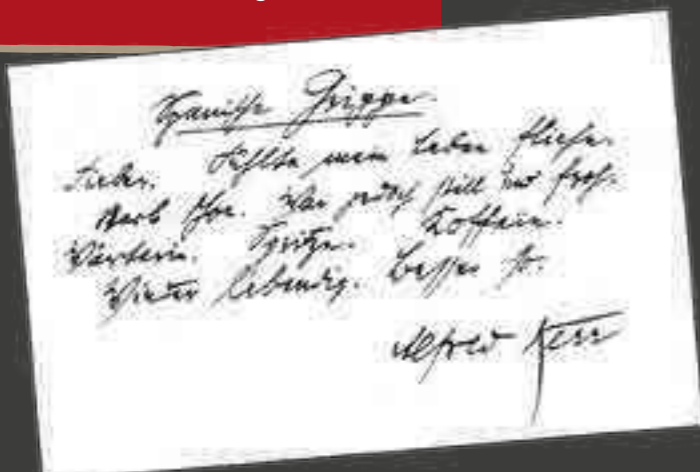 Spanische Grippe.
Fieber. Fühlte mein Leben fliehn.
Starb schon. War jedoch still und froh.
Wärterin. Spritze. Koffein.
Wieder lebendig. Besser so.
Alfred Kerr